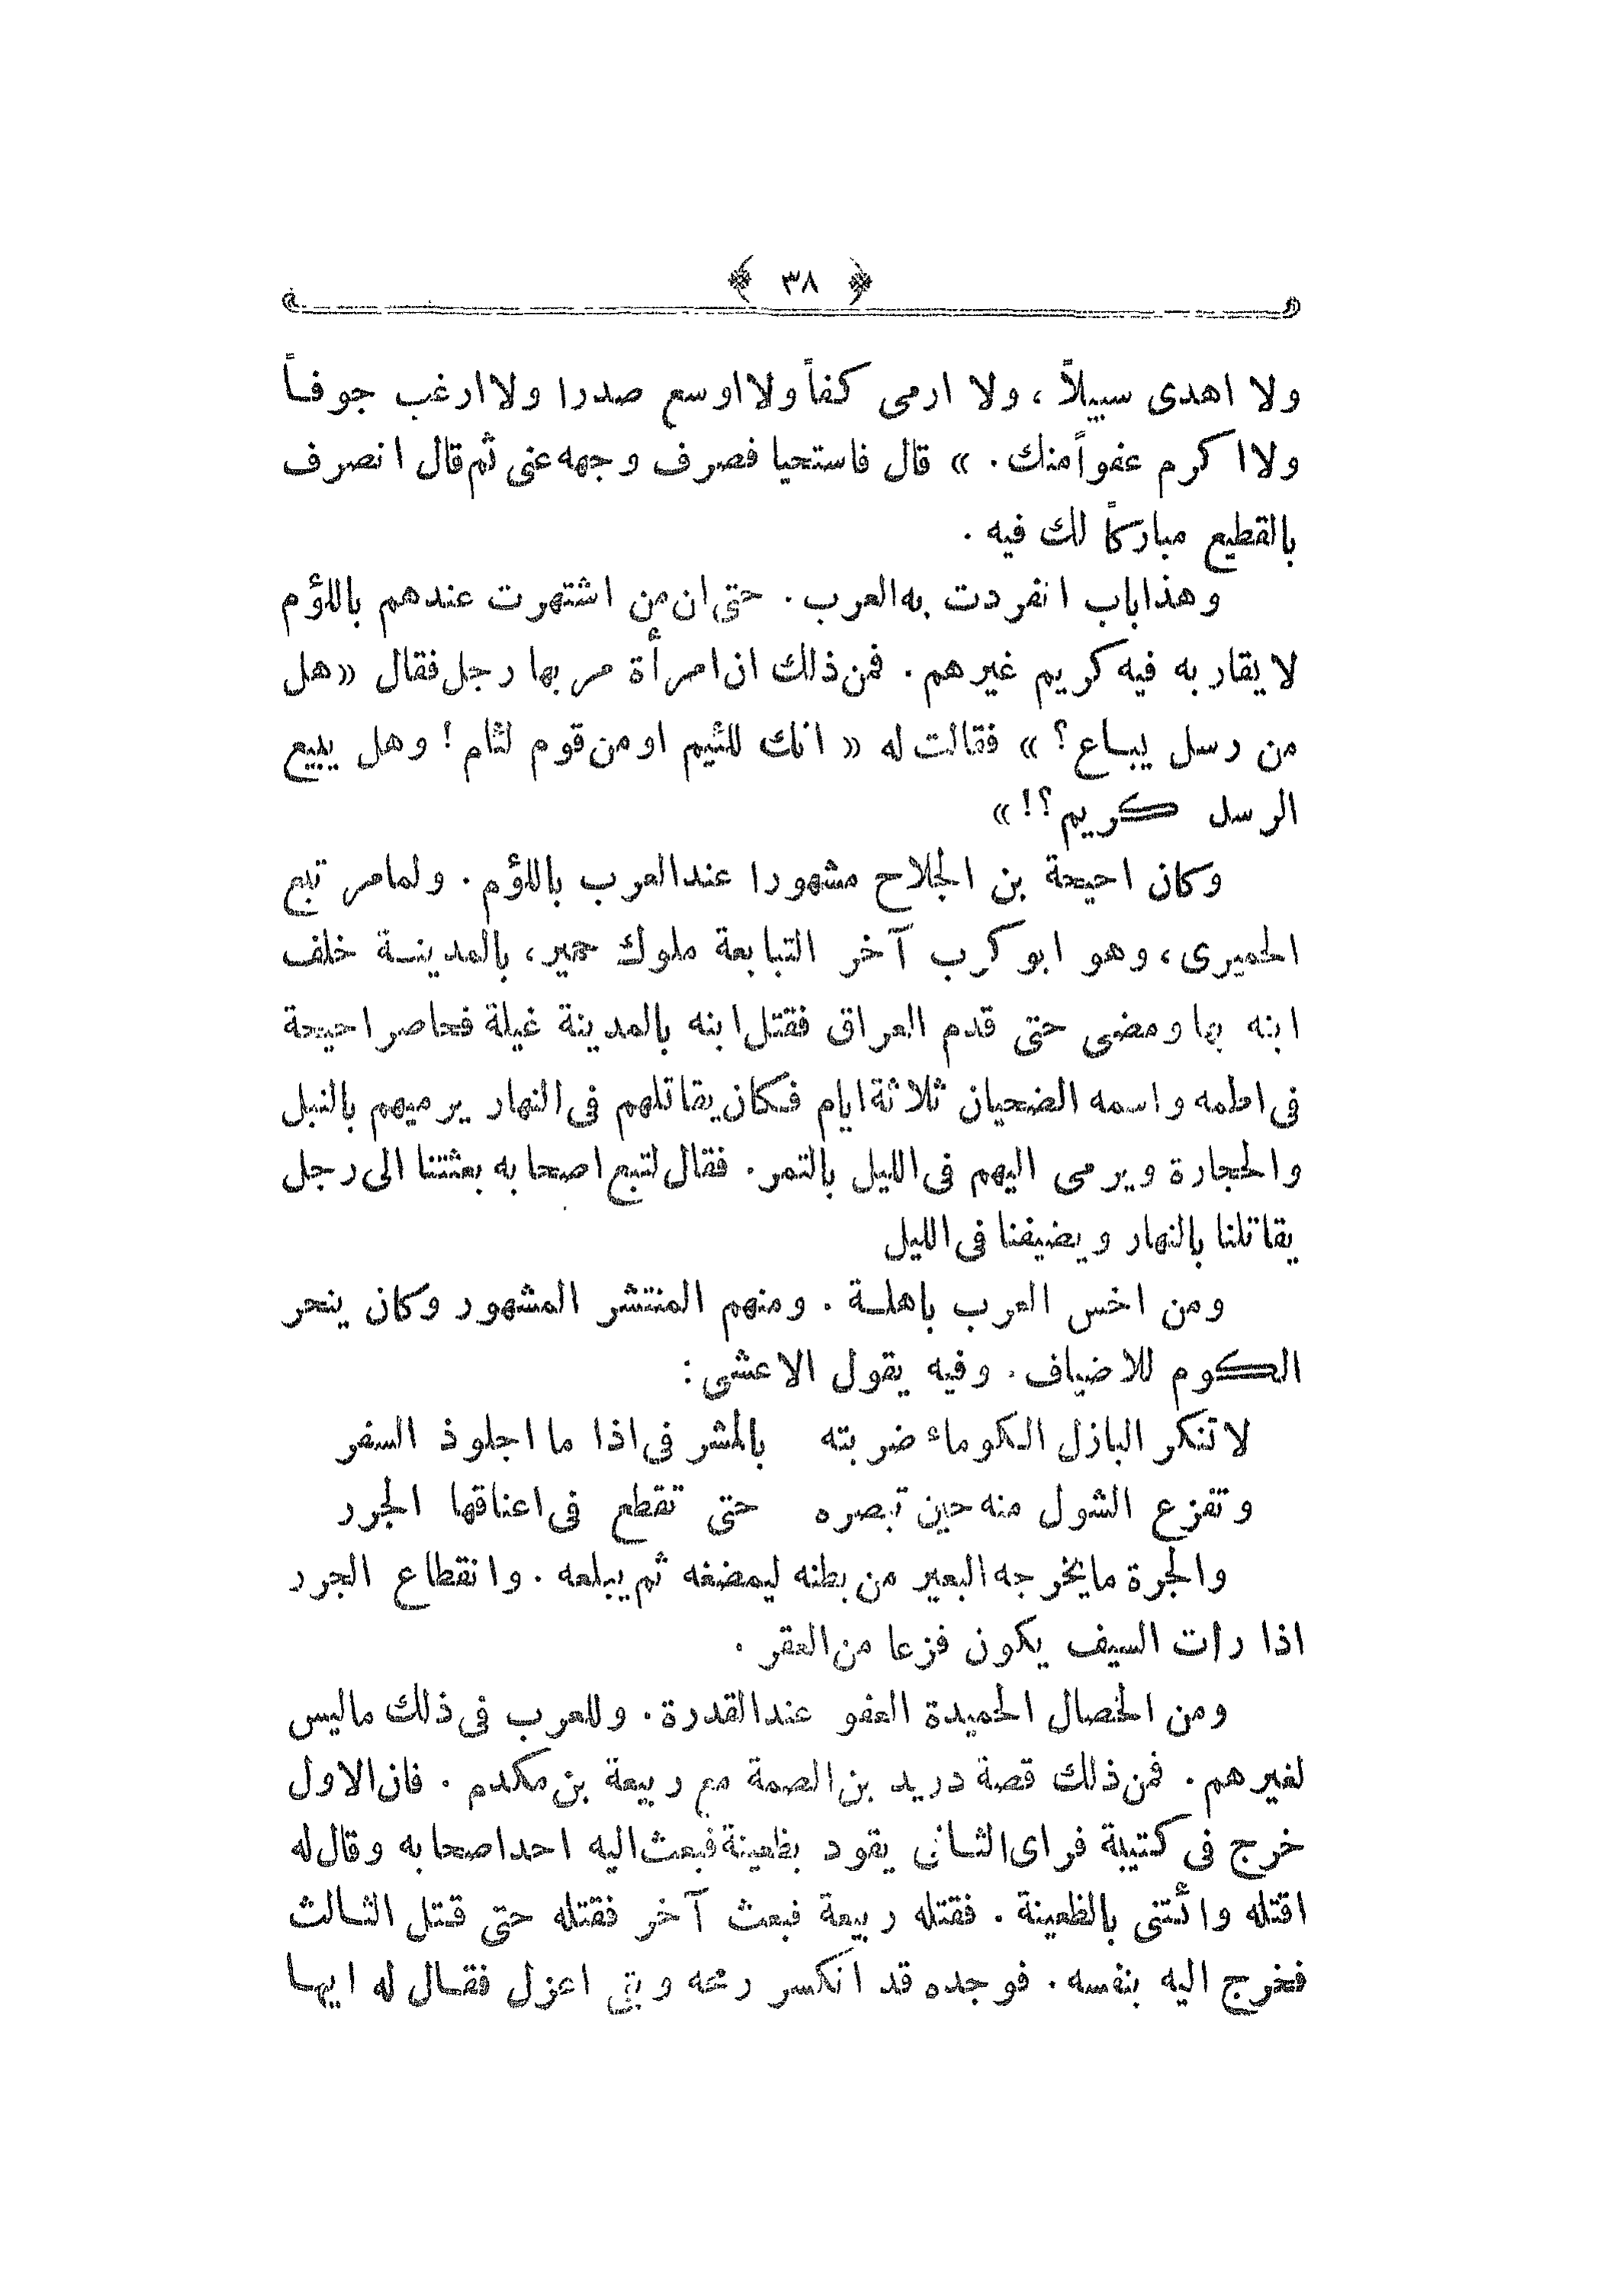 ﴿ ٣٨ ﴾
ولا اهدى سبيلاً ، ولا ارمى كفاً ولا اوسع صدرا ولا ارغب جوفاً
ولا اكرم عفواً منك . » قال فاستحيا فصرف وجهه عنى ثم قال انصرف
بالقطيع مباركاً لك فيه .
وهذا باب انفردت به العرب . حتى ان من اشتهرت عندهم باللؤم
لا يقاربه فيه كريم غيرهم . فمن ذلك ان امرأة مر بها رجل فقال « هل
من رسل يباع ؟ » فقالت له « انك للئيم او من قوم لئام ! وهل يبيع
الرسل كريم ؟! »
وكان احيحة بن الجلاح مشهورا عند العرب باللؤم . ولما مر تبع
الحميرى ، وهو ابو كرب آخر التبابعة ملوك حمير ، بالمدينة خلف
ابنه بها ومضى حتى قدم العراق فقتل ابنه بالمدينة غيلة فحاصر احيحة
فى اطمه واسمه الضحيان ثلاثة ايام فكان يقاتلهم فى النهار يرميهم بالنبل
والحجارة ويرمى اليهم فى الليل بالتمر . فقال لتبع اصحابه بعثتنا الى رجل
يقاتلنا بالنهار ويضيفنا فى الليل
ومن اخس العرب باهلة . ومنهم المنتشر المشهور وكان ينحر
الكوم للاضياف . وفيه يقول الاعشى :
لا تنكر البازل الكوماء ضربته بالمشرفى اذا ما اجلوذ السفر
وتفزع الشول منه حين تبصره حتى تقطع فى اعناقها الجرر
والجرة ما يخرجه البعير من بطنه ليمضغه ثم يبلعه . وانقطاع الجرر
اذا رات السيف يكون فزعا من العقر .
ومن الخصال الحميدة العفو عند القدرة . وللعرب فى ذلك ما ليس
لغيرهم . فمن ذلك قصة دريد بن الصمة مع ربيعة بن مكدم . فان الاول
خرج فى كتيبة فراى الثانى يقود بظعينة فبعث اليه احد اصحابه وقال له
اقتله وائتنى بالظعينة . فقتله ربيعة فبعث آخر فقتله حتى قتل الثالث
فخرج اليه بنفسه . فوجده قد انكسر رمحه وبقى اعزل فقال له ايها